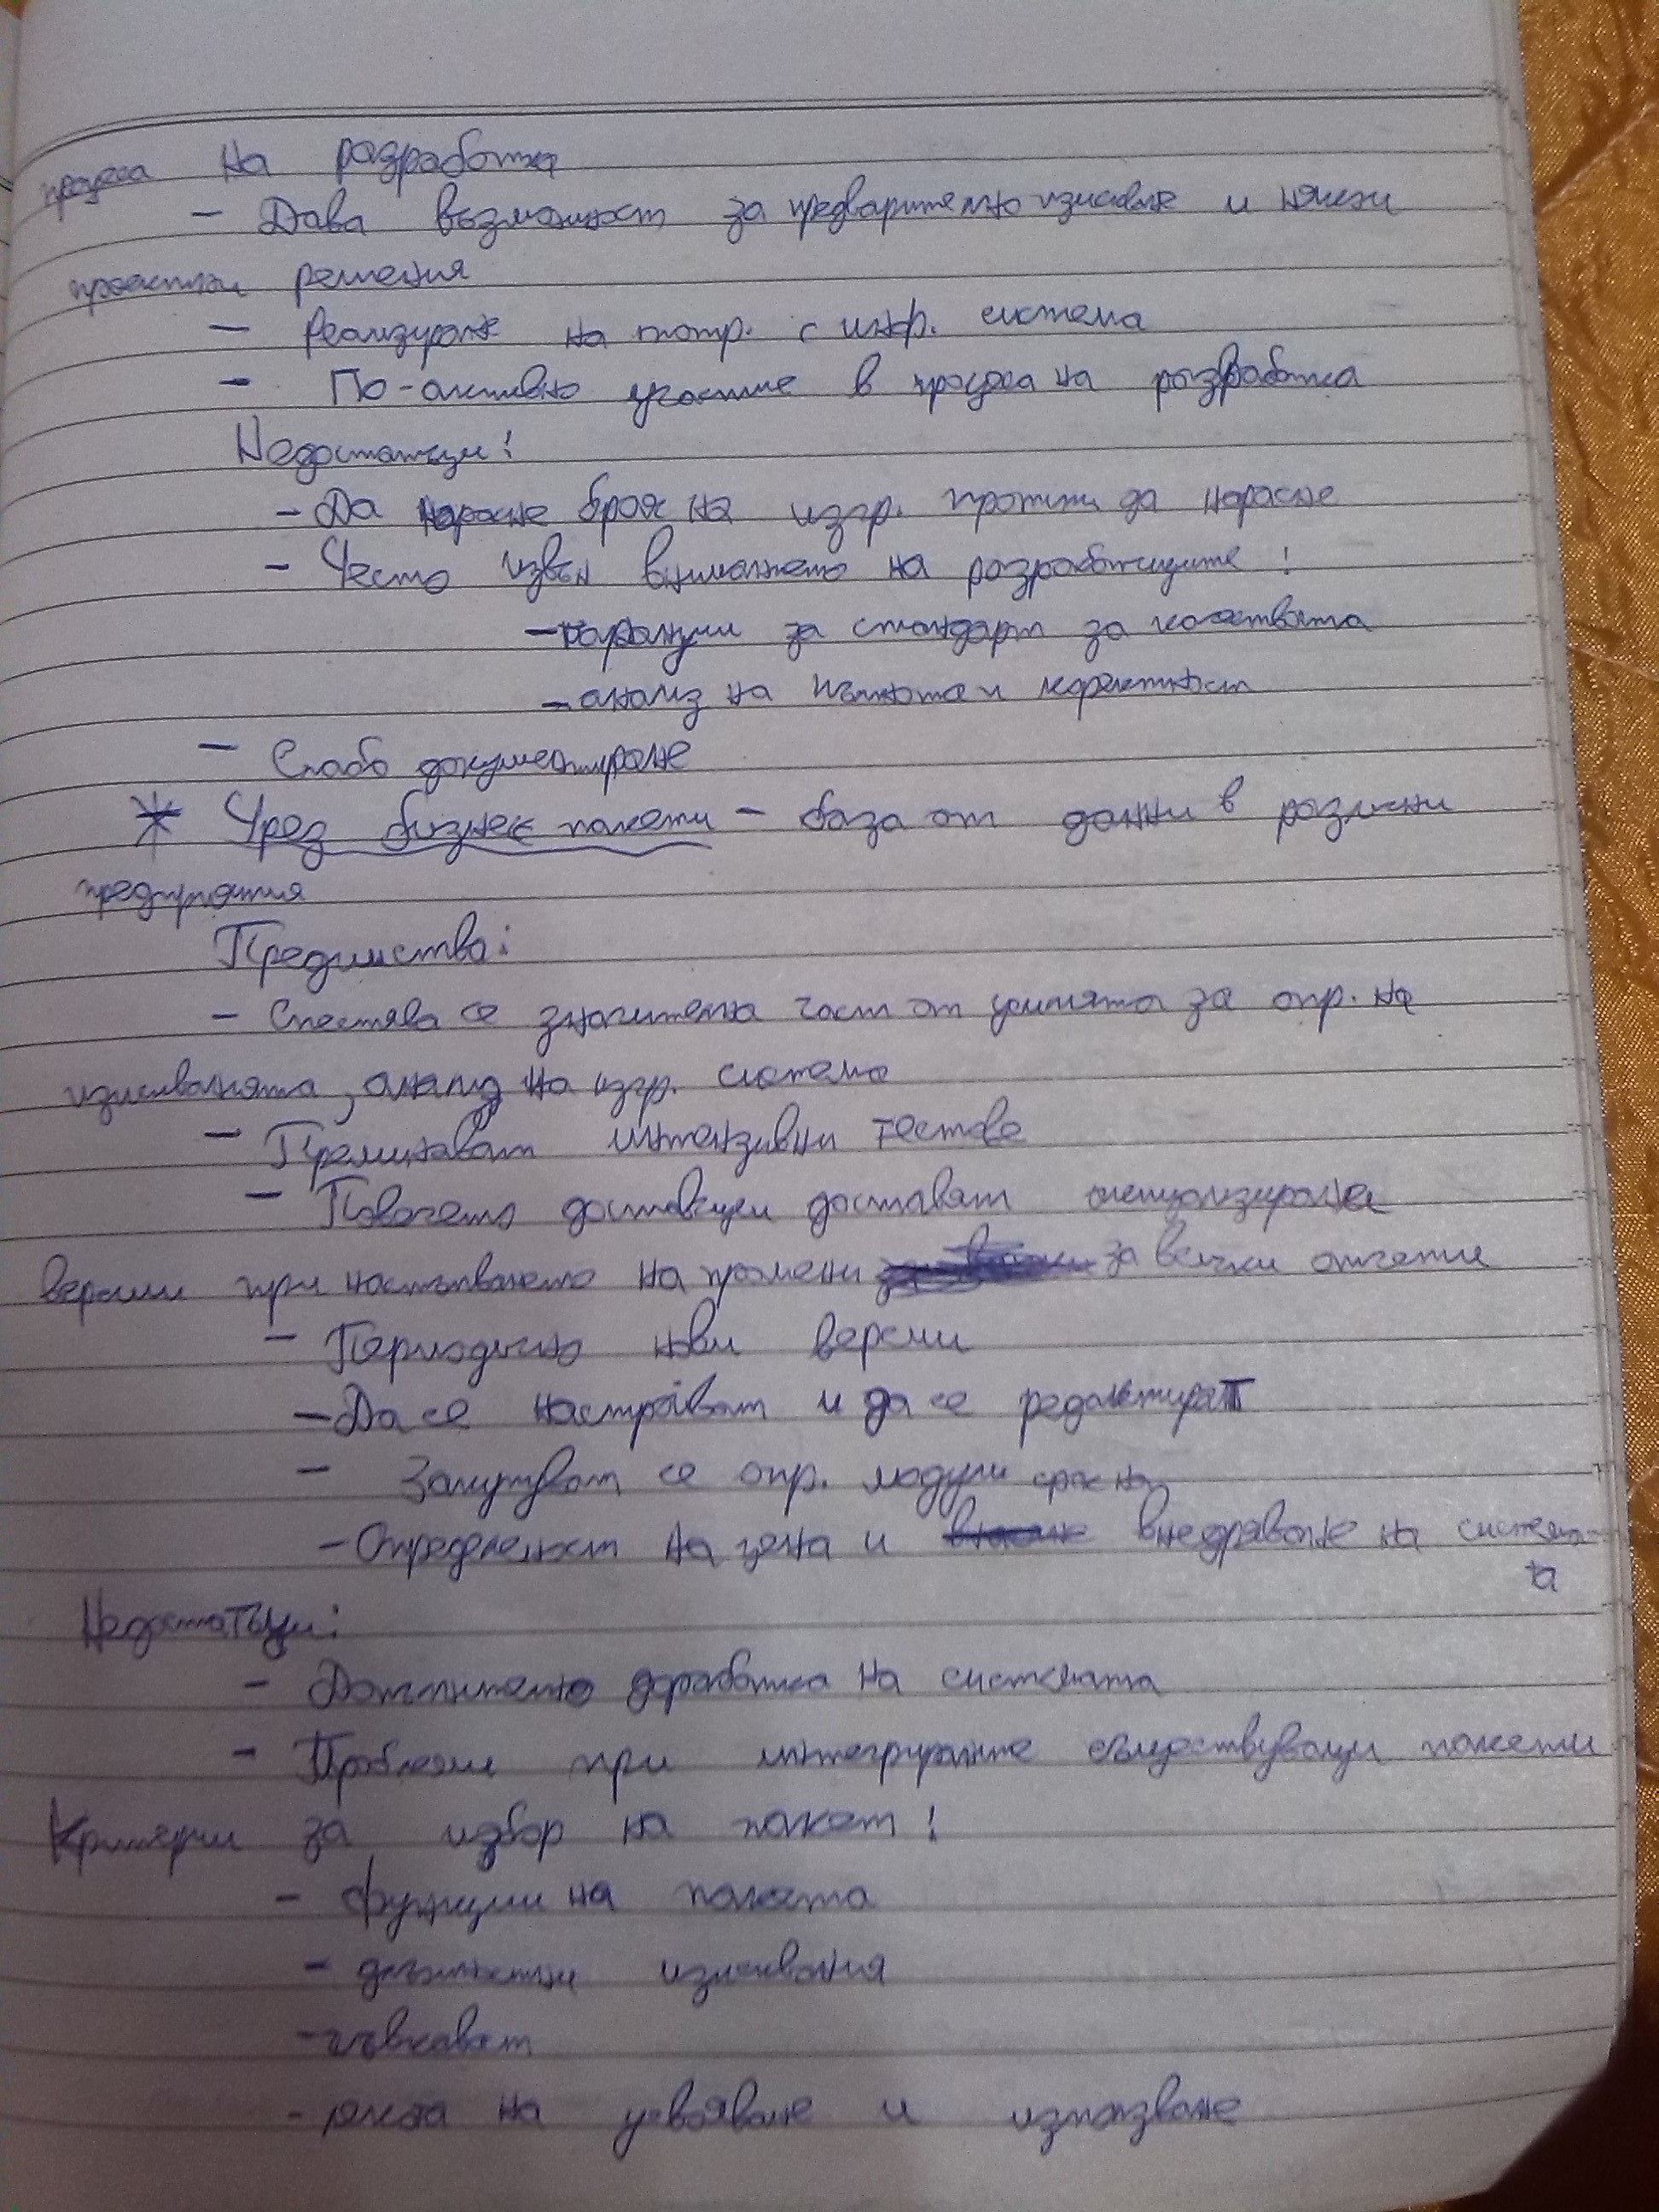 процеса на разработка
- Дава възможност за предварително изискване и някои
проектни решения
- Реализиране на потр. с инф. система
- По-активно участие в процеса на разработка
Недостатъци:
- Да нарасне броя на изгр. прототи да нарасне
- Често извън вниманието на разработчиците:
- гаранции за стандарт за качеството
- анализ на пълнота и коректност
- Слабо документиране
* Чрез бизнес пакети - база от данни в различни
предприятия
Предимства:
- Спестява се значителна част от усилията за опр. на
изискванията, анализ на изгр. система
- Преминават интензивни тестове
- Повечето доставчици доставят актуализирана
версии при настъпването на промени за всички отчети
- Периодично нови версии
- Да се настройват и да се редактират
- Закупуват се опр. модули
- Определеност на цена и внедряване на система
та
Недостатъци:
- Допълнително доработка на системата
- Проблеми при интегриране съществуващи пакети
Критерии за избор на пакет:
- функции на пакета
- допълнителни изисквания
- гъвкавост
- лекота на усвояване и използване